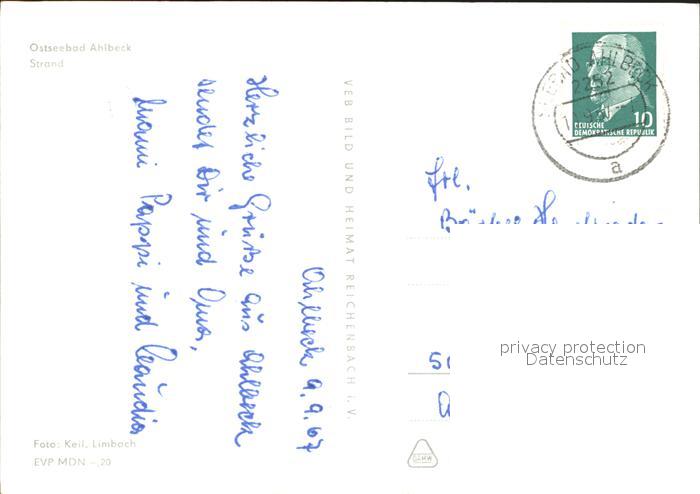 Ostseebad Ahlbeck
Strand
Ahlbeck 9.9.67
Herzliche Grüße aus Ahlbeck
sendet Dir und Oma,
Mami Pappi und Claudia
VEB BILD UND HEIMAT REICHENBACH i. V.
Foto: Keil, Limbach
EVP MDN –,20
AHLBECK
2252
a
10
DEUTSCHE
DEMOKRATISCHE REPUBLIK
Frl.
privacy protection
Datenschutz